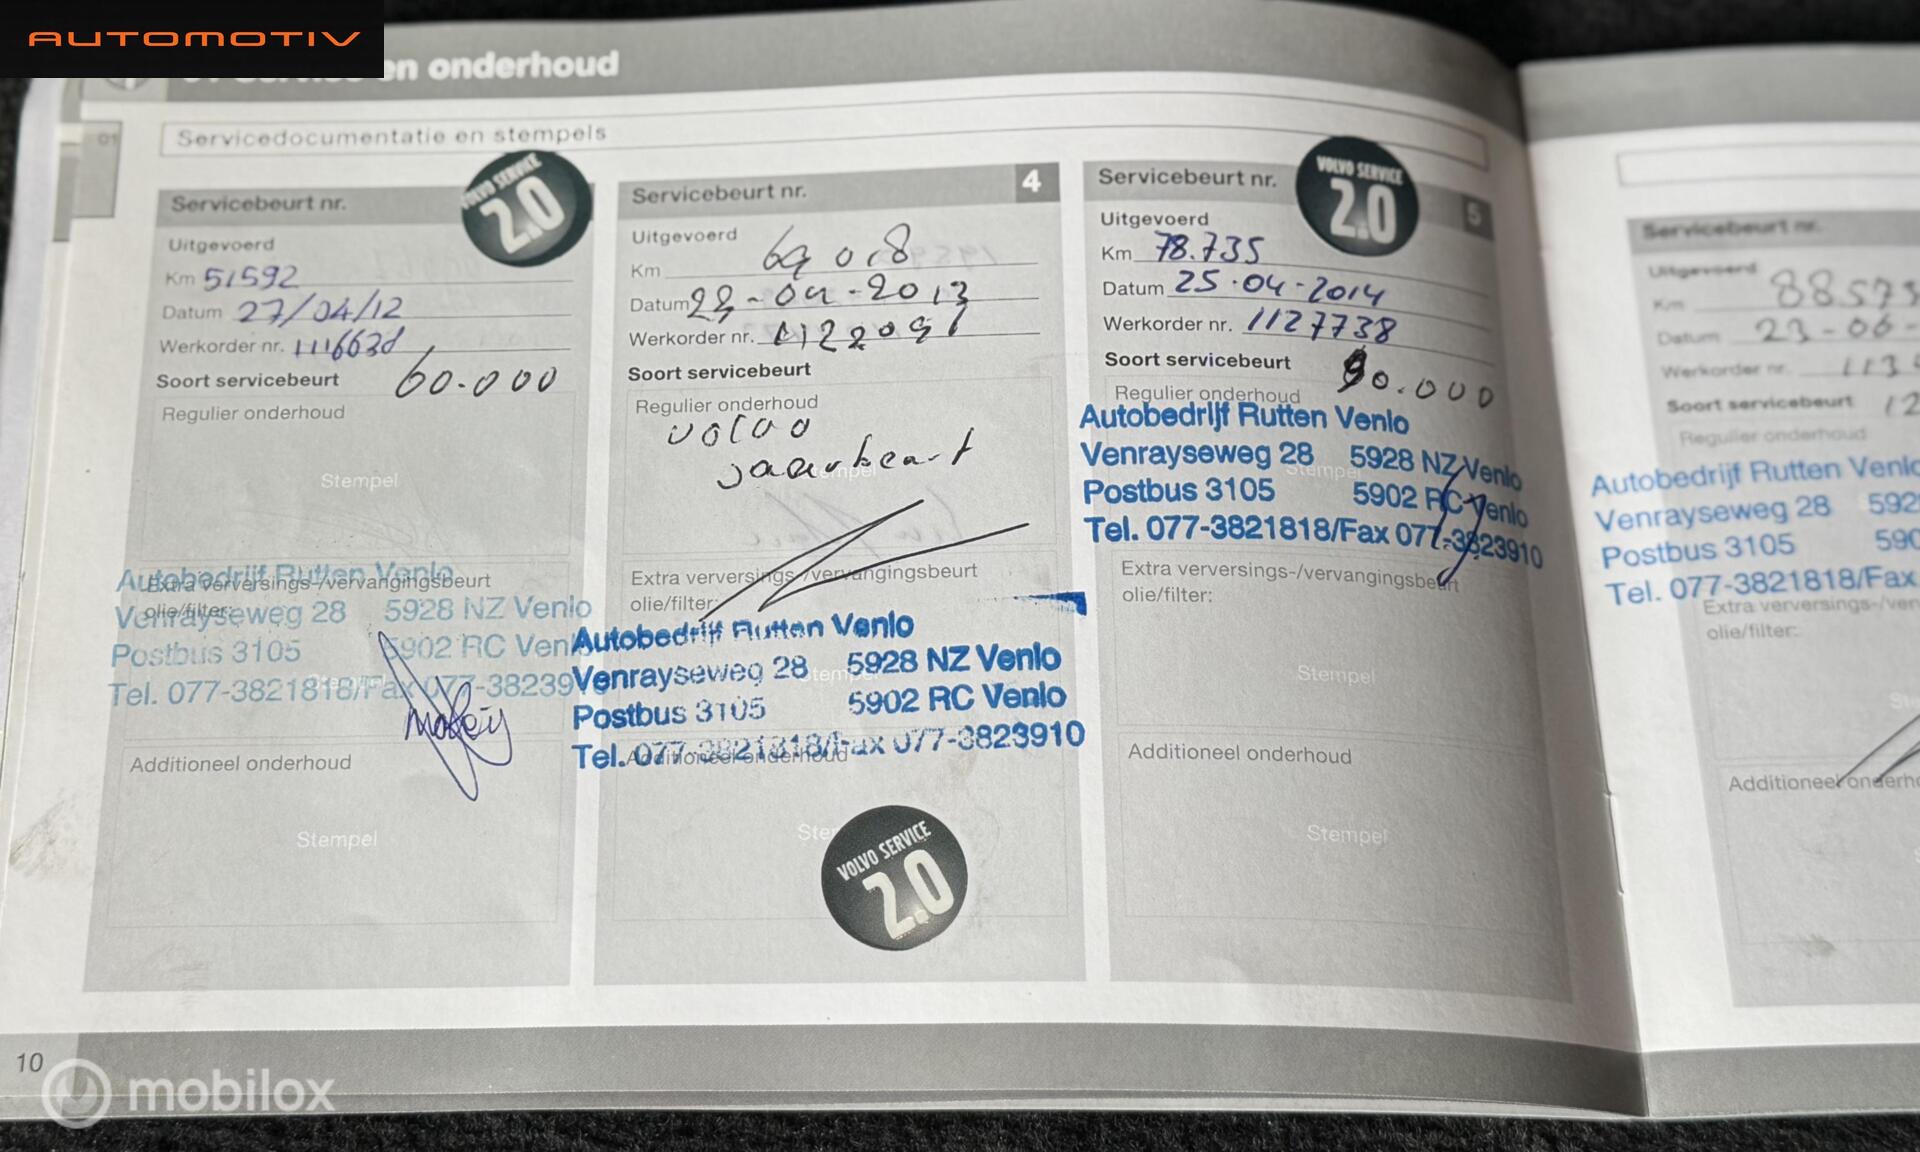 AUTOMOTIV
en onderhoud
01
Servicedocumentatie en stempels
Servicebeurt nr.
VOLVO SERVICE
2.0
Uitgevoerd
Km 51592
Datum 27/04/12
Werkorder nr.
Soort servicebeurt 60.000
Regulier onderhoud
Stempel
Extra verversings-/vervangingsbeurt
olie/filter:
Autobedrijf Rutten Venlo
Venrayseweg 28 5928 NZ Venlo
Postbus 3105 5902 RC Venlo
Tel. 077-3821818/Fax 077-38239
Stempel
Additioneel onderhoud
Stempel
Servicebeurt nr. 4
Uitgevoerd
Km
Datum
Werkorder nr.
Soort servicebeurt
Regulier onderhoud
volvo
jaarbeurt
Stempel
Extra verversings-/vervangingsbeurt
olie/filter:
Autobedrijf Rutten Venlo
Venrayseweg 28 5928 NZ Venlo
Postbus 3105 5902 RC Venlo
Tel. 077-3821818/Fax 077-3823910
Stempel
Additioneel onderhoud
VOLVO SERVICE
2.0
Servicebeurt nr. 5
VOLVO SERVICE
2.0
Uitgevoerd
Km 78.735
Datum 25-04-2014
Werkorder nr. 1127738
Soort servicebeurt 90.000
Regulier onderhoud
Stempel
Autobedrijf Rutten Venlo
Venrayseweg 28 5928 NZ Venlo
Postbus 3105 5902 RC Venlo
Tel. 077-3821818/Fax 077-3823910
Extra verversings-/vervangingsbeurt
olie/filter:
Stempel
Additioneel onderhoud
Stempel
Servicebeurt nr.
Uitgevoerd
Km 88575
Datum 23-06-
Werkorder nr. 113
Soort servicebeurt 12
Regulier onderhoud
Autobedrijf Rutten Venlo
Venrayseweg 28 592
Postbus 3105 590
Tel. 077-3821818/Fax
Extra verversings-/ver
olie/filter:
Additioneel onderho
10
mobilox